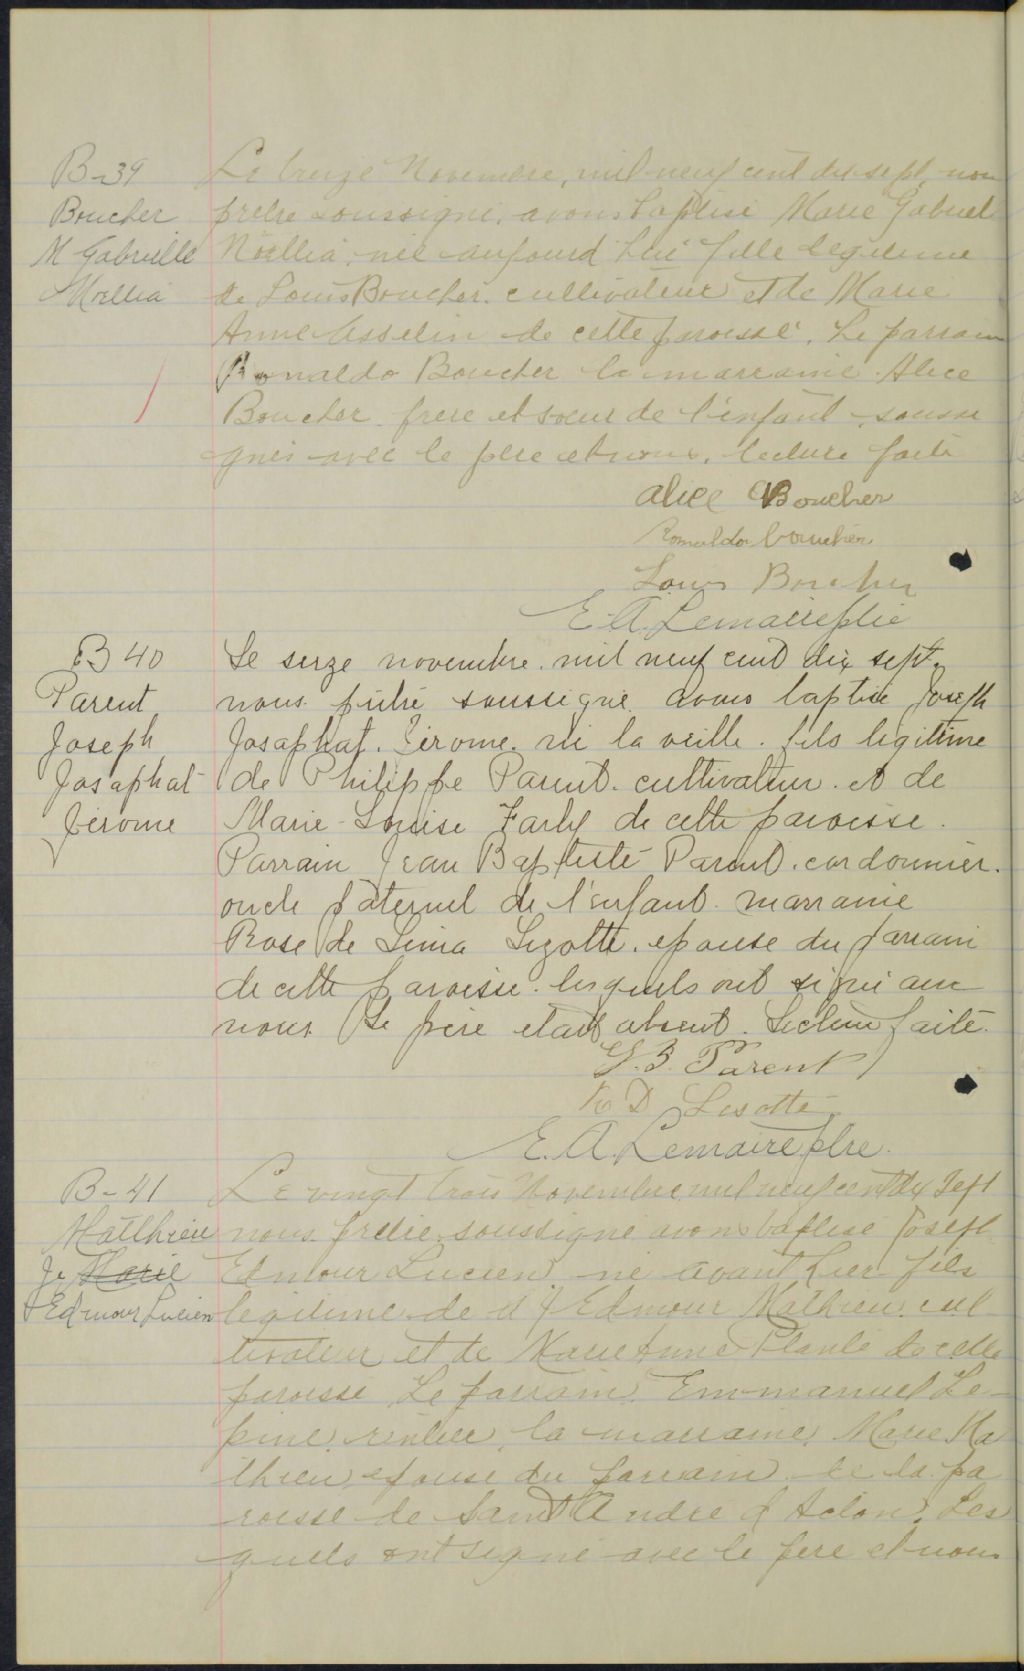 B-39
Boucher
M Gabrielle
Noellia
Le treize Novembre, mil neuf cent dix sept, nous
prêtre soussigné, avons baptisé Marie Gabriel
Noellia, née aujourd'hui fille légitime
de Louis Boucher cultivateur et de Marie
Anne Asselin de cette paroisse. Le parrain
Romaldo Boucher la marraine Alice
Boucher frère et soeur de l'enfant, soussi
gnés avec le père et nous. lecture faite
Alice Boucher
Romaldo Boucher
Louis Boucher
E. A. Lemaire ptre
B 40
Parent
Joseph
Josaphat
Jérome
Le seize novembre mil neuf cent dix sept,
nous prêtre soussigné avons baptisé Joseph
Josaphat Jérome né la veille fils légitime
de Philippe Parent cultivateur et de
Marie-Louise Farly de cette paroisse.
Parrain Jean Baptiste Parent cordonnier
oncle paternel de l'enfant marraine
Rose de Lima Lizotte épouse du parrain
de cette paroisse lesquels ont signé avec
nous Le père était absent. Lecture faite.
J. B. Parent
R D Lisotte
E. A. Lemaire ptre.
B-41
Matthieu
Js Marie
Edmour Lucien
Le vingt trois Novembre mil neuf cent dix Sept
nous prêtre soussigné avons baptisé Joseph
Edmour Lucien né avant hier fils
légitime de Edmour Mathieu cul
tivateur et de Marie Anne Plante de cette
paroisse Le parrain Emmanuel Le-
pine rentier, la marraine, Marie Ma
thieu épouse du parrain de la pa
roisse de Saint André d'Acton, Les
quels ont signé avec le père et nous